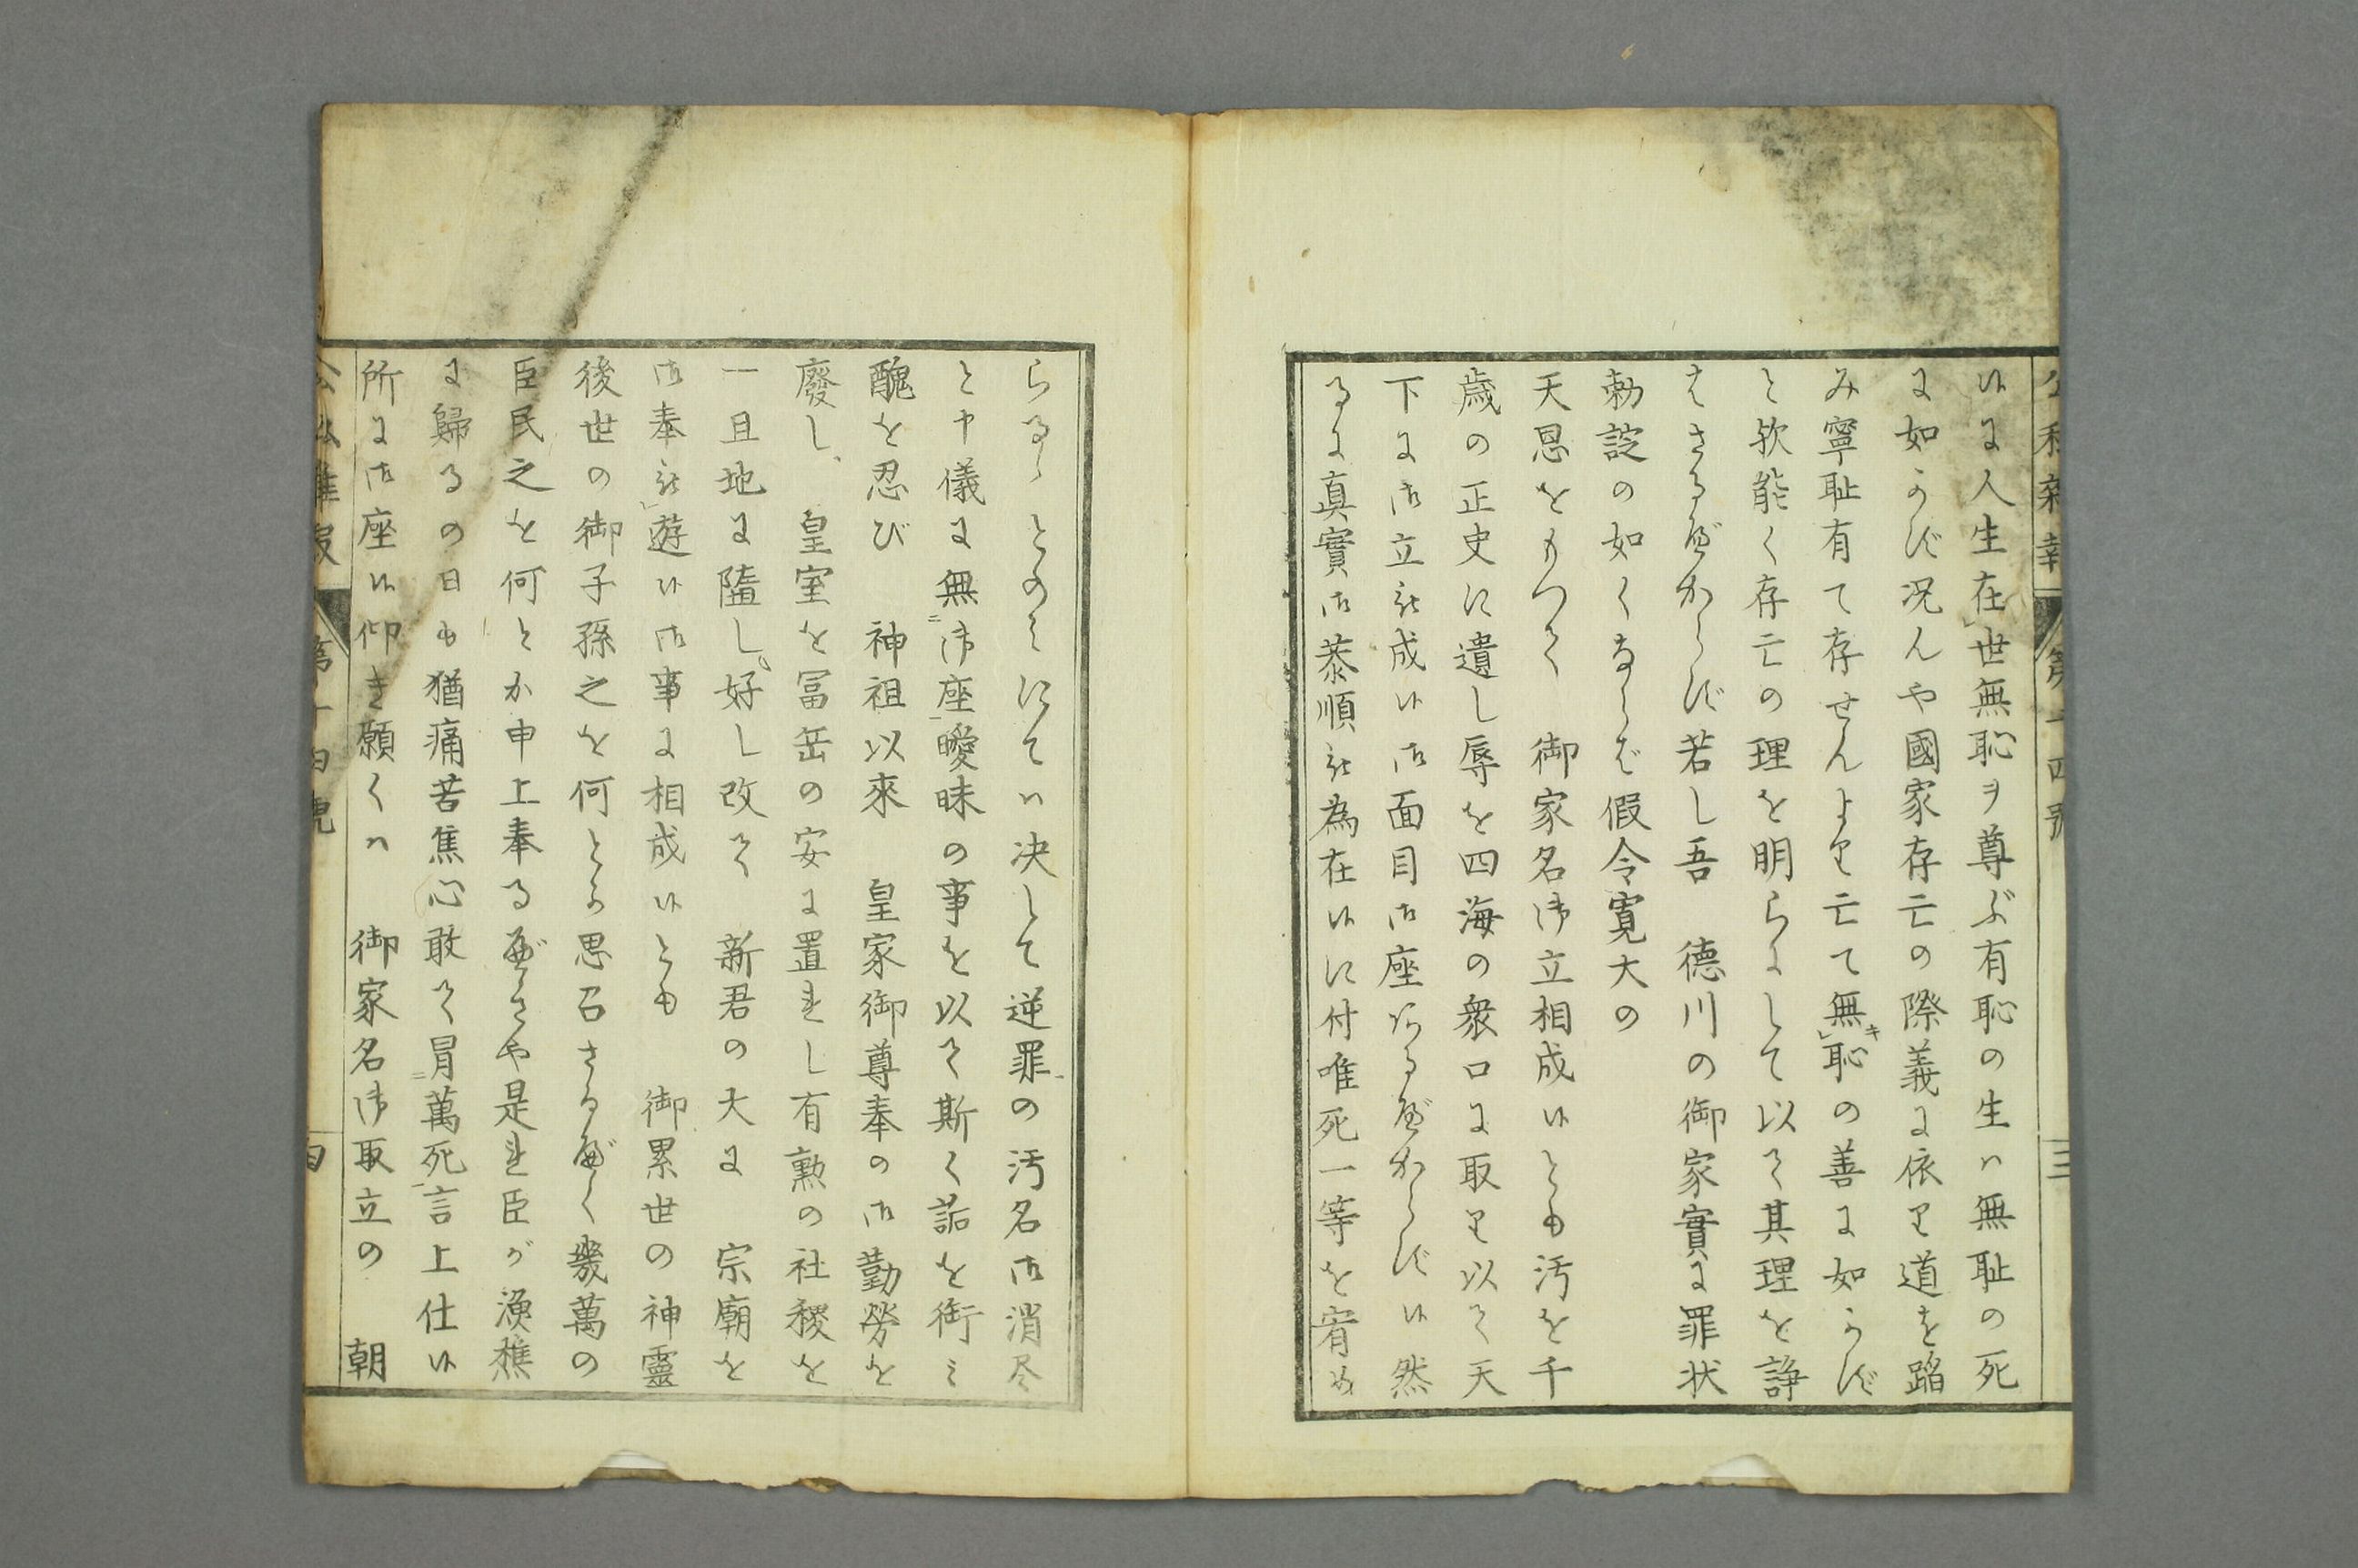 公私雑報 第十四號 三
候に人生在世無恥ヲ尊ぶ有恥の生ハ無耻の死
に如かず况んや國家存亡の際義に依り道を蹈
み寧耻有て存せんより亡て無キ恥の善に如かず
と欤能く存亡の理を明らにして以て其理を諍
はざるべからず若し吾 徳川の御家實に罪状
勅諚の如くならば假令寛大の
天恩をもつて 御家名御立相成候とも汚を千
歳の正史に遺し辱を四海の衆口に取り以て天
下に御立被成候御面目御座ある可からず候然
るに真實御恭順被為在候に付唯死一等を宥め
らるゝとのみにてハ决して逆罪の汚名御消尽
と申儀に無御座曖昧の事を以て斯く詬を銜ミ
醜を忍び 神祖以來 皇家御尊奉の御勤勞を
廢し 皇室を冨岳の安に置れし有勲の社稷を
一旦地に隳し好し改て 新君の大に 宗廟を
御奉被遊候御事に相成候とも 御累世の神靈
後世の御子孫之を何とか思召さるべく幾萬の
臣民之を何とか申上奉るべきや是れ臣が漁樵
に歸るの日も猶痛苦焦心敢て冒萬死言上仕候
所に御座候仰き願くハ 御家名御取立の 朝
公私雑報 第十四號 四